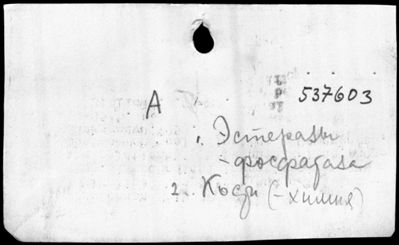 537603
А
1. Эстеразы
- фосфатаза
2. Кости (-химия)